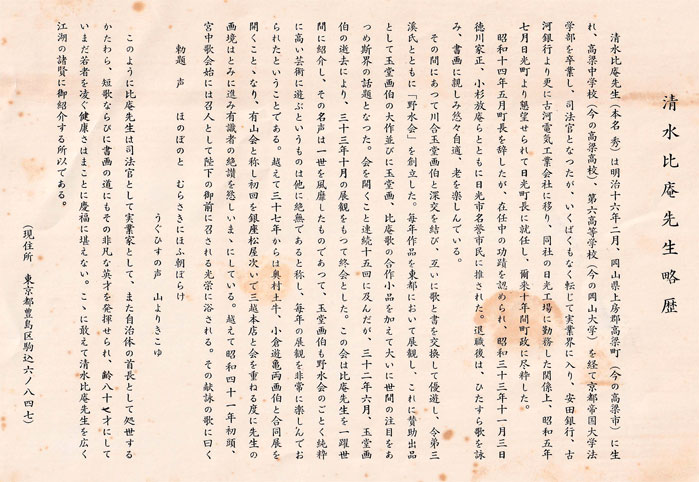 清水比庵先生略歴
清水比庵先生（本名 秀）は明治十六年二月、岡山県上房郡高梁町（今の高梁市）に生
れ、高梁中学校（今の高梁高校）、第六高等学校（今の岡山大学）を経て京都帝国大学法
学部を卒業し、司法官となつたが、いくばくもなく転じて実業界に入り、安田銀行、古
河銀行より更に古河電気工業会社に移り、同社の日光工場に勤務した関係上、昭和五年
七月日光町より懇望せられて日光町長に就任し、爾来十年間町政に尽粹した。
昭和十四年五月町長を辞したが、在任中の功蹟を認められ、昭和三十三年十一月三日
徳川家正、小杉放庵らとともに日光市名誉市民に推された。退職後は、ひたすら歌を詠
み、書画に親しみ悠々自適、老を楽しんでいる。
その間にあつて川合玉堂画伯と深交を結び、互いに歌と書を交換して優遊し、今弟三
溪氏とともに「野水会」を創立した。毎年作品を東都において展観し、これに賛助出品
として玉堂画伯の大作並びに玉堂画、比庵歌の合作小品を加えて大いに世間の注目をあ
つめ斯界の話題となつた。会を開くこと連続十五回に及んだが、三十二年六月、玉堂画
伯の逝去により、三十三年十月の展観をもつて終会とした。この会は比庵先生を一躍世
間に紹介し、その名声は一世を風靡したものであつて、玉堂画伯も野水会のごとく純粋
に高い芸術に遊ぶというものは他に絶無であると称し、毎年の展観を非常に楽しんでお
られたということである。越えて三十七年からは奥村土牛、小倉遊亀両画伯と合同展を
開くことゝなり、有山会と称し初回を銀座松屋次いで三越本店と会を重ねる度に先生の
画境はとみに進み有識者の絶讃を慫しいまゝにしている。越えて昭和四十一年初頭、
宮中歌会始には召人として陛下の御前に召される光栄に浴される。その献詠の歌に曰く
勅題 声 ほのぼのと むらさきにほふ朝ぼらけ
うぐひすの声 山よりきこゆ
このように比庵先生は司法官として実業家として、また自治体の首長として処世する
かたわら、短歌ならびに書画の道にもその非凡な英才を発揮せられ、齢八十七才にして
いまだ若者を凌ぐ健康さはまことに慶福に堪えない。こゝに敢えて清水比庵先生を広く
江湖の諸賢に御紹介する所以である。
（現住所 東京都豊島区駒込六ノ八四七）